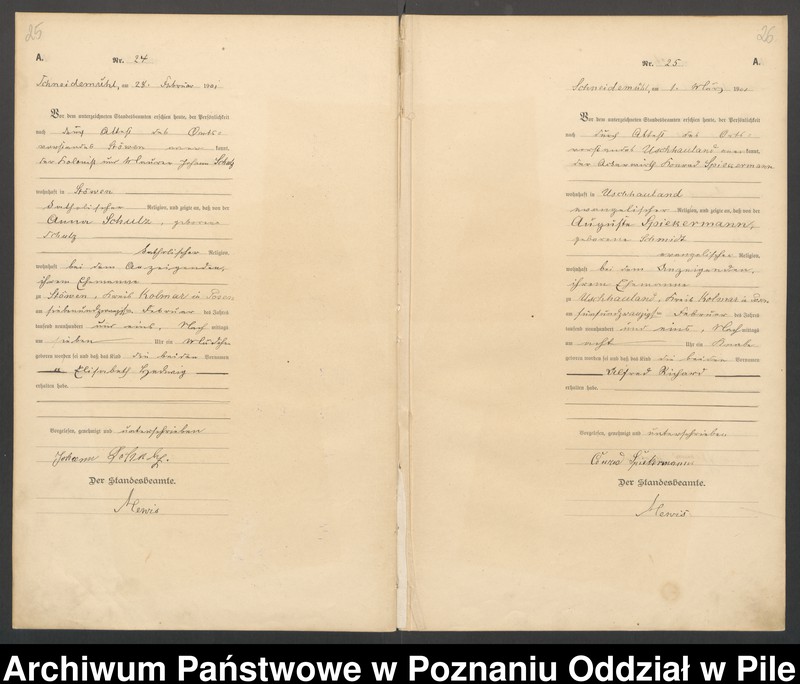 25
A.
Nr. 24
Schneidemühl, am 28. Februar 1901
Vor dem unterzeichneten Standesbeamten erschien heute, der Persönlichkeit
nach durch Attest des Orts-
vorstandes Stöwen anerkannt,
der Kolonist und Maurer Johann Schulz
wohnhaft in Stöwen
katholischer Religion, und zeigte an, daß von der
Anna Schulz, geborene
Schulz
katholischer Religion,
wohnhaft bei dem Anzeigenden,
ihrem Ehemanne
zu Stöwen, Kreis Kolmar in Posen
am siebenundzwanzigsten Februar des Jahres
tausend neunhundert und eins, Nachmittags
um sieben Uhr ein Mädchen
geboren worden sei und daß das Kind die beiden Vornamen
Elisabeth Hedwig
erhalten habe.
Vorgelesen, genehmigt und unterschrieben
Johann Schulz.
Der Standesbeamte.
Mewis
26
Nr. 25
A.
Schneidemühl, am 1. März 1901
Vor dem unterzeichneten Standesbeamten erschien heute, der Persönlichkeit
nach durch Attest des Orts-
vorstandes Uschhauland anerkannt,
der Ackerwirth Konrad Spickermann
wohnhaft in Uschhauland
evangelischer Religion, und zeigte an, daß von der
Auguste Spickermann,
geborene Schmidt
evangelischer Religion,
wohnhaft bei dem Anzeigenden,
ihrem Ehemanne
zu Uschhauland, Kreis Kolmar in Posen
am fünfundzwanzigsten Februar des Jahres
tausend neunhundert und eins, Nachmittags
um acht Uhr ein Knabe
geboren worden sei und daß das Kind die beiden Vornamen
Alfred Richard
erhalten habe.
Vorgelesen, genehmigt und unterschrieben
Spickermann
Der Standesbeamte.
Mewis
Archiwum Państwowe w Poznaniu Oddział w Pile